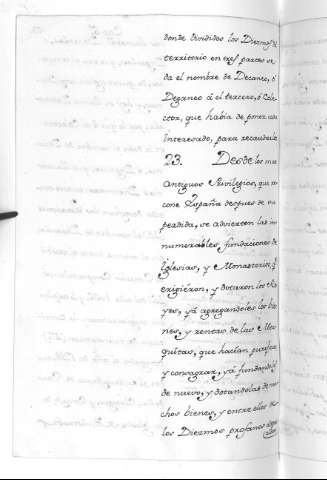 donde divididos los Diezmos del
territorio en tres partes se
da el nombre de Decaneo, ó
Deganeo á el tercero, ó Colec
ctor, que habia de poner cada
Interesado, para recaudarlos
23. Desde los mas
Antiguos Privilegios, que reco
noce España despues de su
perdida, se advierten las in
numerables fundaciones de
Iglesias, y Monasterios, q.
erigiéron, y dotaron los Re
yes, yá agregandoles los bie
nes, y rentas de las Mez
quitas, que hacian purificar
y consagrar, yá fundando
de nuevo, y dotandolas de mu
chos bienes, y entre ellos de
los Diezmos profanos